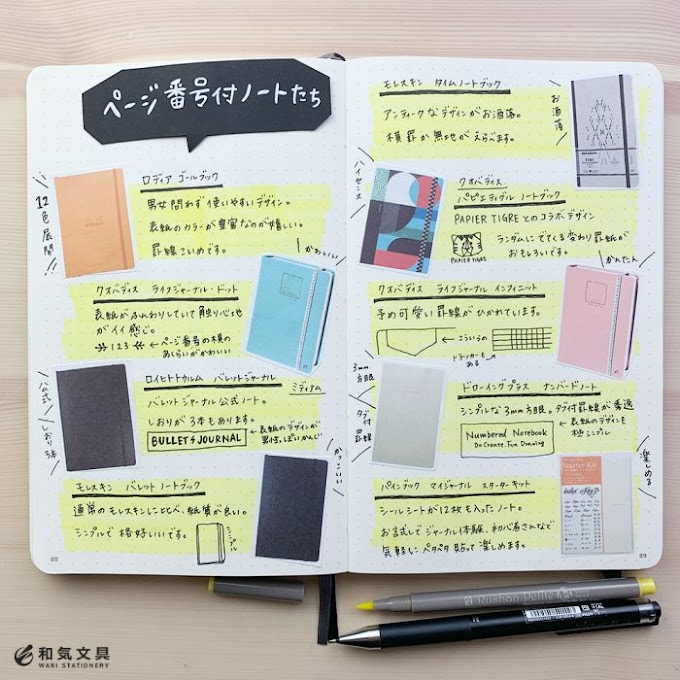 ページ番号付ノートたち
ロディア ゴールブック
男女問わず使いやすいデザイン。
表紙のカラーが豊富なのが嬉しい。
罫線こいめです。
12色展開!!
かわいい
クオバディス ライフジャーナル・ドット
表紙がふんわりしていて触り心地
がイイ感じ。
123 ← ページ番号の横の
あしらいがかわいい
ロイヒトトゥルム バレットジャーナル
ミディアム
バレットジャーナル公式ノート。
しおりが3本もあります。
BULLETS JOURNAL
← 表紙のデザインが
男性っぽいかんじ
公式
しおり3本
かっこいい
モレスキン バレットノートブック
通常のモレスキンにくらべ、紙質が良い。
シンプルで格好いいです。
シンプル
88
モレスキン タイムノートブック
アンティークなデザインがお洒落。
横罫か無地がえらべます。
お洒落
ハイセンス
クオバディス
パピエティグル ノートブック
PAPIER TIGREとのコラボデザイン
PAPIER TIGRE
ランダムにでてくる変わり罫紙が
おもしろいです。
かんたん
クオバディス ライフジャーナル インフィニット
予め可愛い罫線がひかれています。
← こういうの
トラッカーも
ある
3mm方眼
タブ付罫線
ドローイングプラス ナンバードノート
シンプルな3mm方眼。タブ付罫線が秀逸
Numbered Notebook
Do Create. Fun Drawing
← 表紙のデザインも
極シンプル
楽しめる
パインブック マイジャーナル スターターキット
シールシートが12枚も入ったノート。
お試しでジャーナル体験、初心者さんなど
気軽にペタペタ貼って楽しめます。
Starter Kit
89
和気文具
WAKI STATIONERY